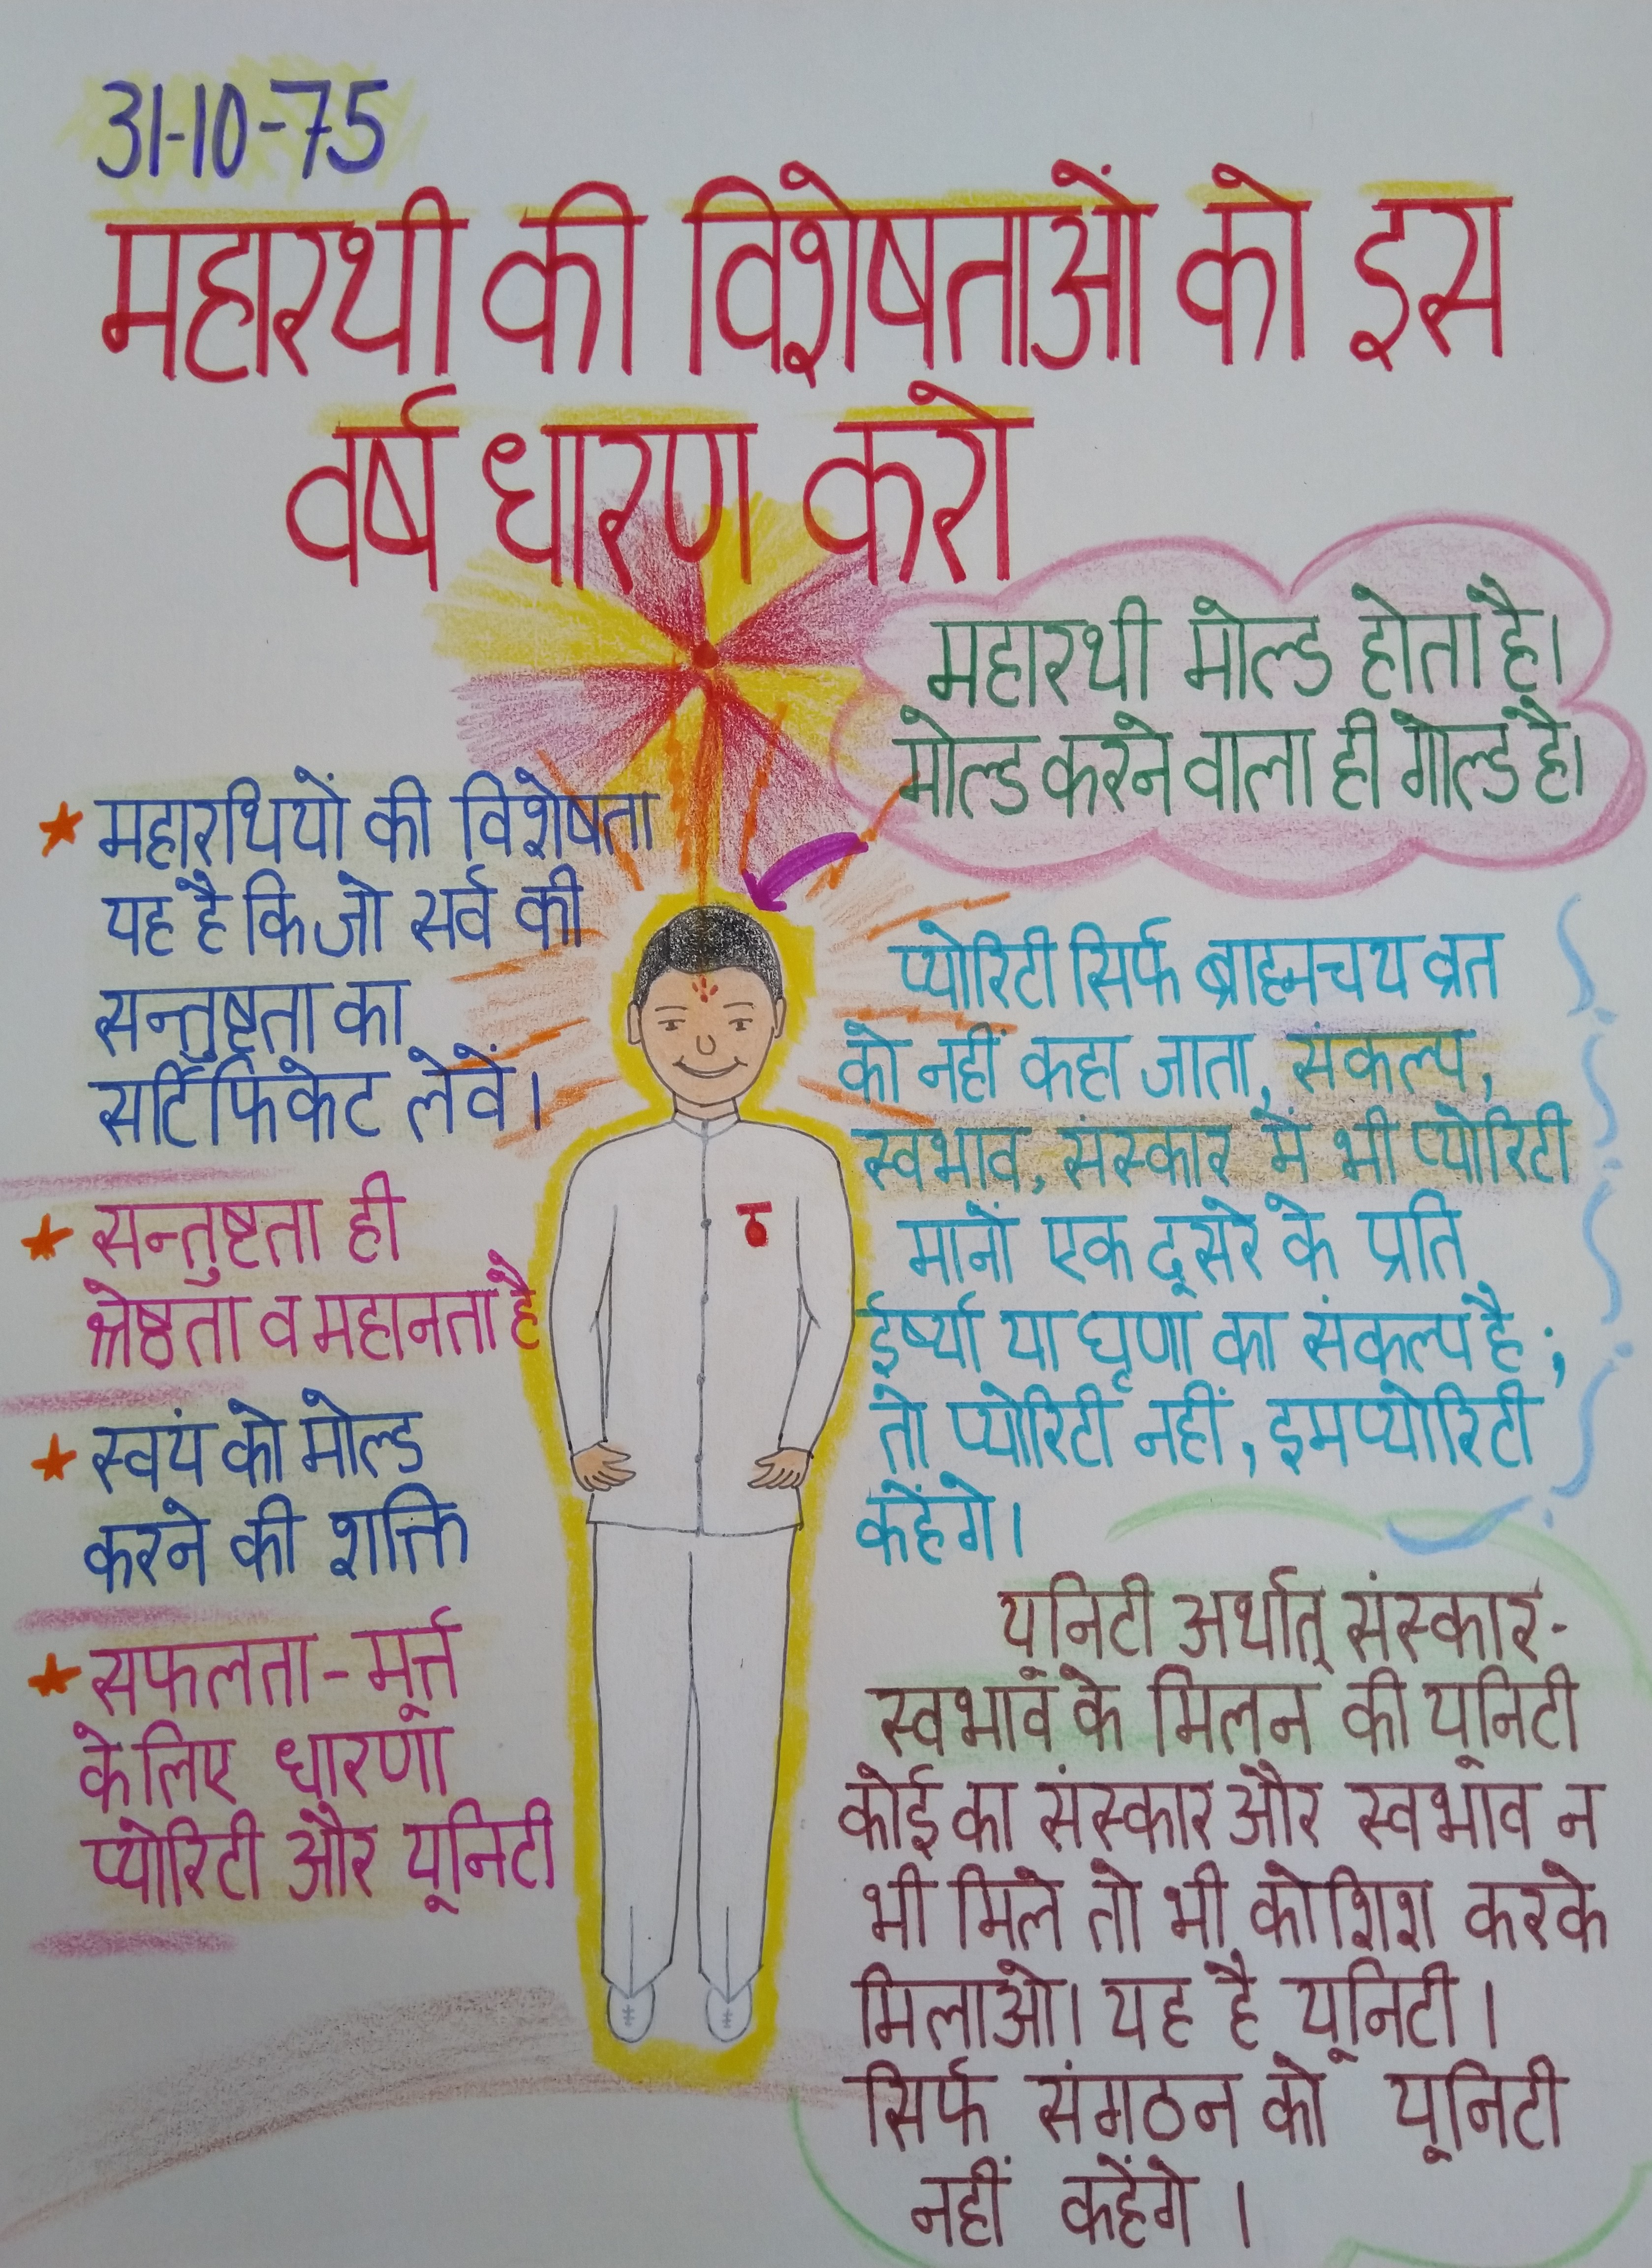 31-10-75
महारथी की विशेषताओं को इस
वर्ष धारण करो
महारथी मोल्ड होता है।
मोल्ड करने वाला ही गोल्ड है।
महारथियों की विशेषता
यह है कि जो सर्व की
सन्तुष्टता का
सर्टिफिकेट लेवें।
सन्तुष्टता ही
श्रेष्ठता व महानता है
स्वयं को मोल्ड
करने की शक्ति
सफलता-मूर्त्त
के लिए धारणा
प्योरिटी और यूनिटी
प्योरिटी सिर्फ ब्राह्मचय व्रत
को नहीं कहा जाता, संकल्प,
स्वभाव, संस्कार में भी प्योरिटी
मानों एक दूसरे के प्रति
ईर्ष्या या घृणा का संकल्प है;
तो प्योरिटी नहीं, इमप्योरिटी
कहेंगे।
यूनिटी अर्थात् संस्कार-
स्वभाव के मिलन की यूनिटी
कोई का संस्कार और स्वभाव न
भी मिले तो भी कोशिश करके
मिलाओ। यह है यूनिटी।
सिर्फ संगठन को यूनिटी
नहीं कहेंगे।